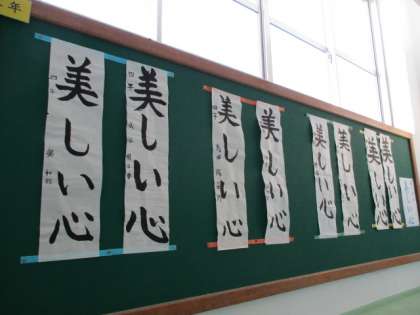 年
美しい心
四年
美しい心
四年
美しい心
四年
美しい心
美しい心
美しい心
美しい心
美しい心